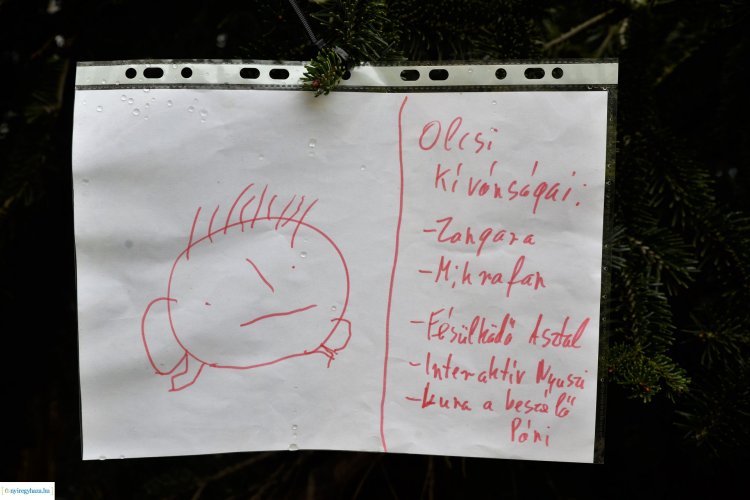 Olcsi
Kívánságai:
-Zongora
-Mikrofon
-Fésülködő Asztal
-Interaktív Nyuszi
-Luna a beszélő
Póni
nyiregyhaza.hu